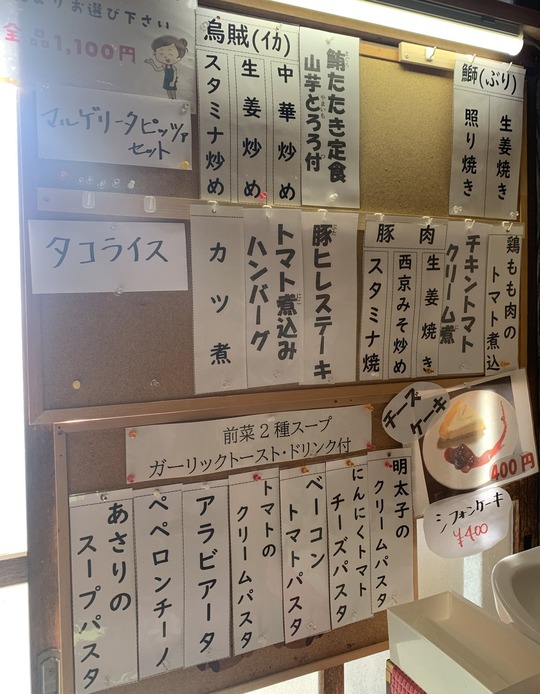 よりお選び下さい
全品1,100円
マルゲリータピッツァ
セット
タコライス
鰤(ぶり)
生姜焼き
照り焼き
鮪たたき定食
山芋とろろ付
烏賊(イカ)
中華炒め
生姜炒め
スタミナ炒め
鶏もも肉の
トマト煮込
チキントマト
クリーム煮
豚肉
生姜焼き
西京みそ炒め
スタミナ焼
豚ヒレステーキ
トマト煮込み
ハンバーグ
カツ煮
チーズ
ケーキ
400円
シフォンケーキ
¥400
前菜2種スープ
ガーリックトースト・ドリンク付
明太子の
クリームパスタ
にんにくトマト
チーズパスタ
ベーコン
トマトパスタ
トマトの
クリームパスタ
アラビアータ
ペペロンチーノ
あさりの
スープパスタ